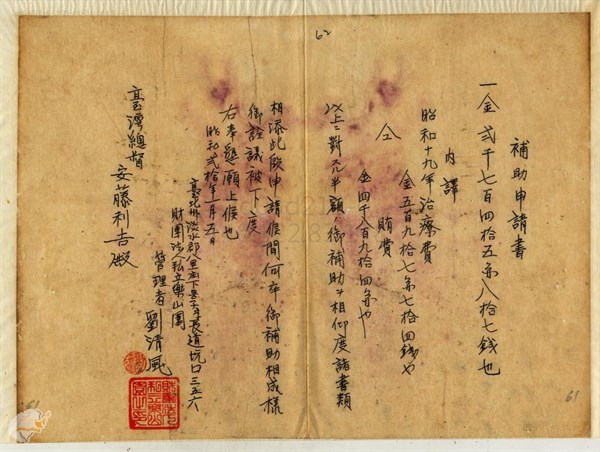 62
補助申請書
一金弐千七百四拾五円八拾七銭也
内譯
昭和十九年治療費
金五百九拾七円七拾四銭也
仝 賄費
金四千八百九拾四円也
以上ニ對シ半額ノ御補助ヲ相仰度諸書類
相添此段申請候間何卒御補助相成様
御詮議被下度
右奉懇願上候也
昭和弐拾年一月五日
臺北州淡水郡八里庄下罟子字長道坑口三五六
財團法人私立樂山園
管理者 劉清風
臺灣總督
安藤利吉殿
61
61